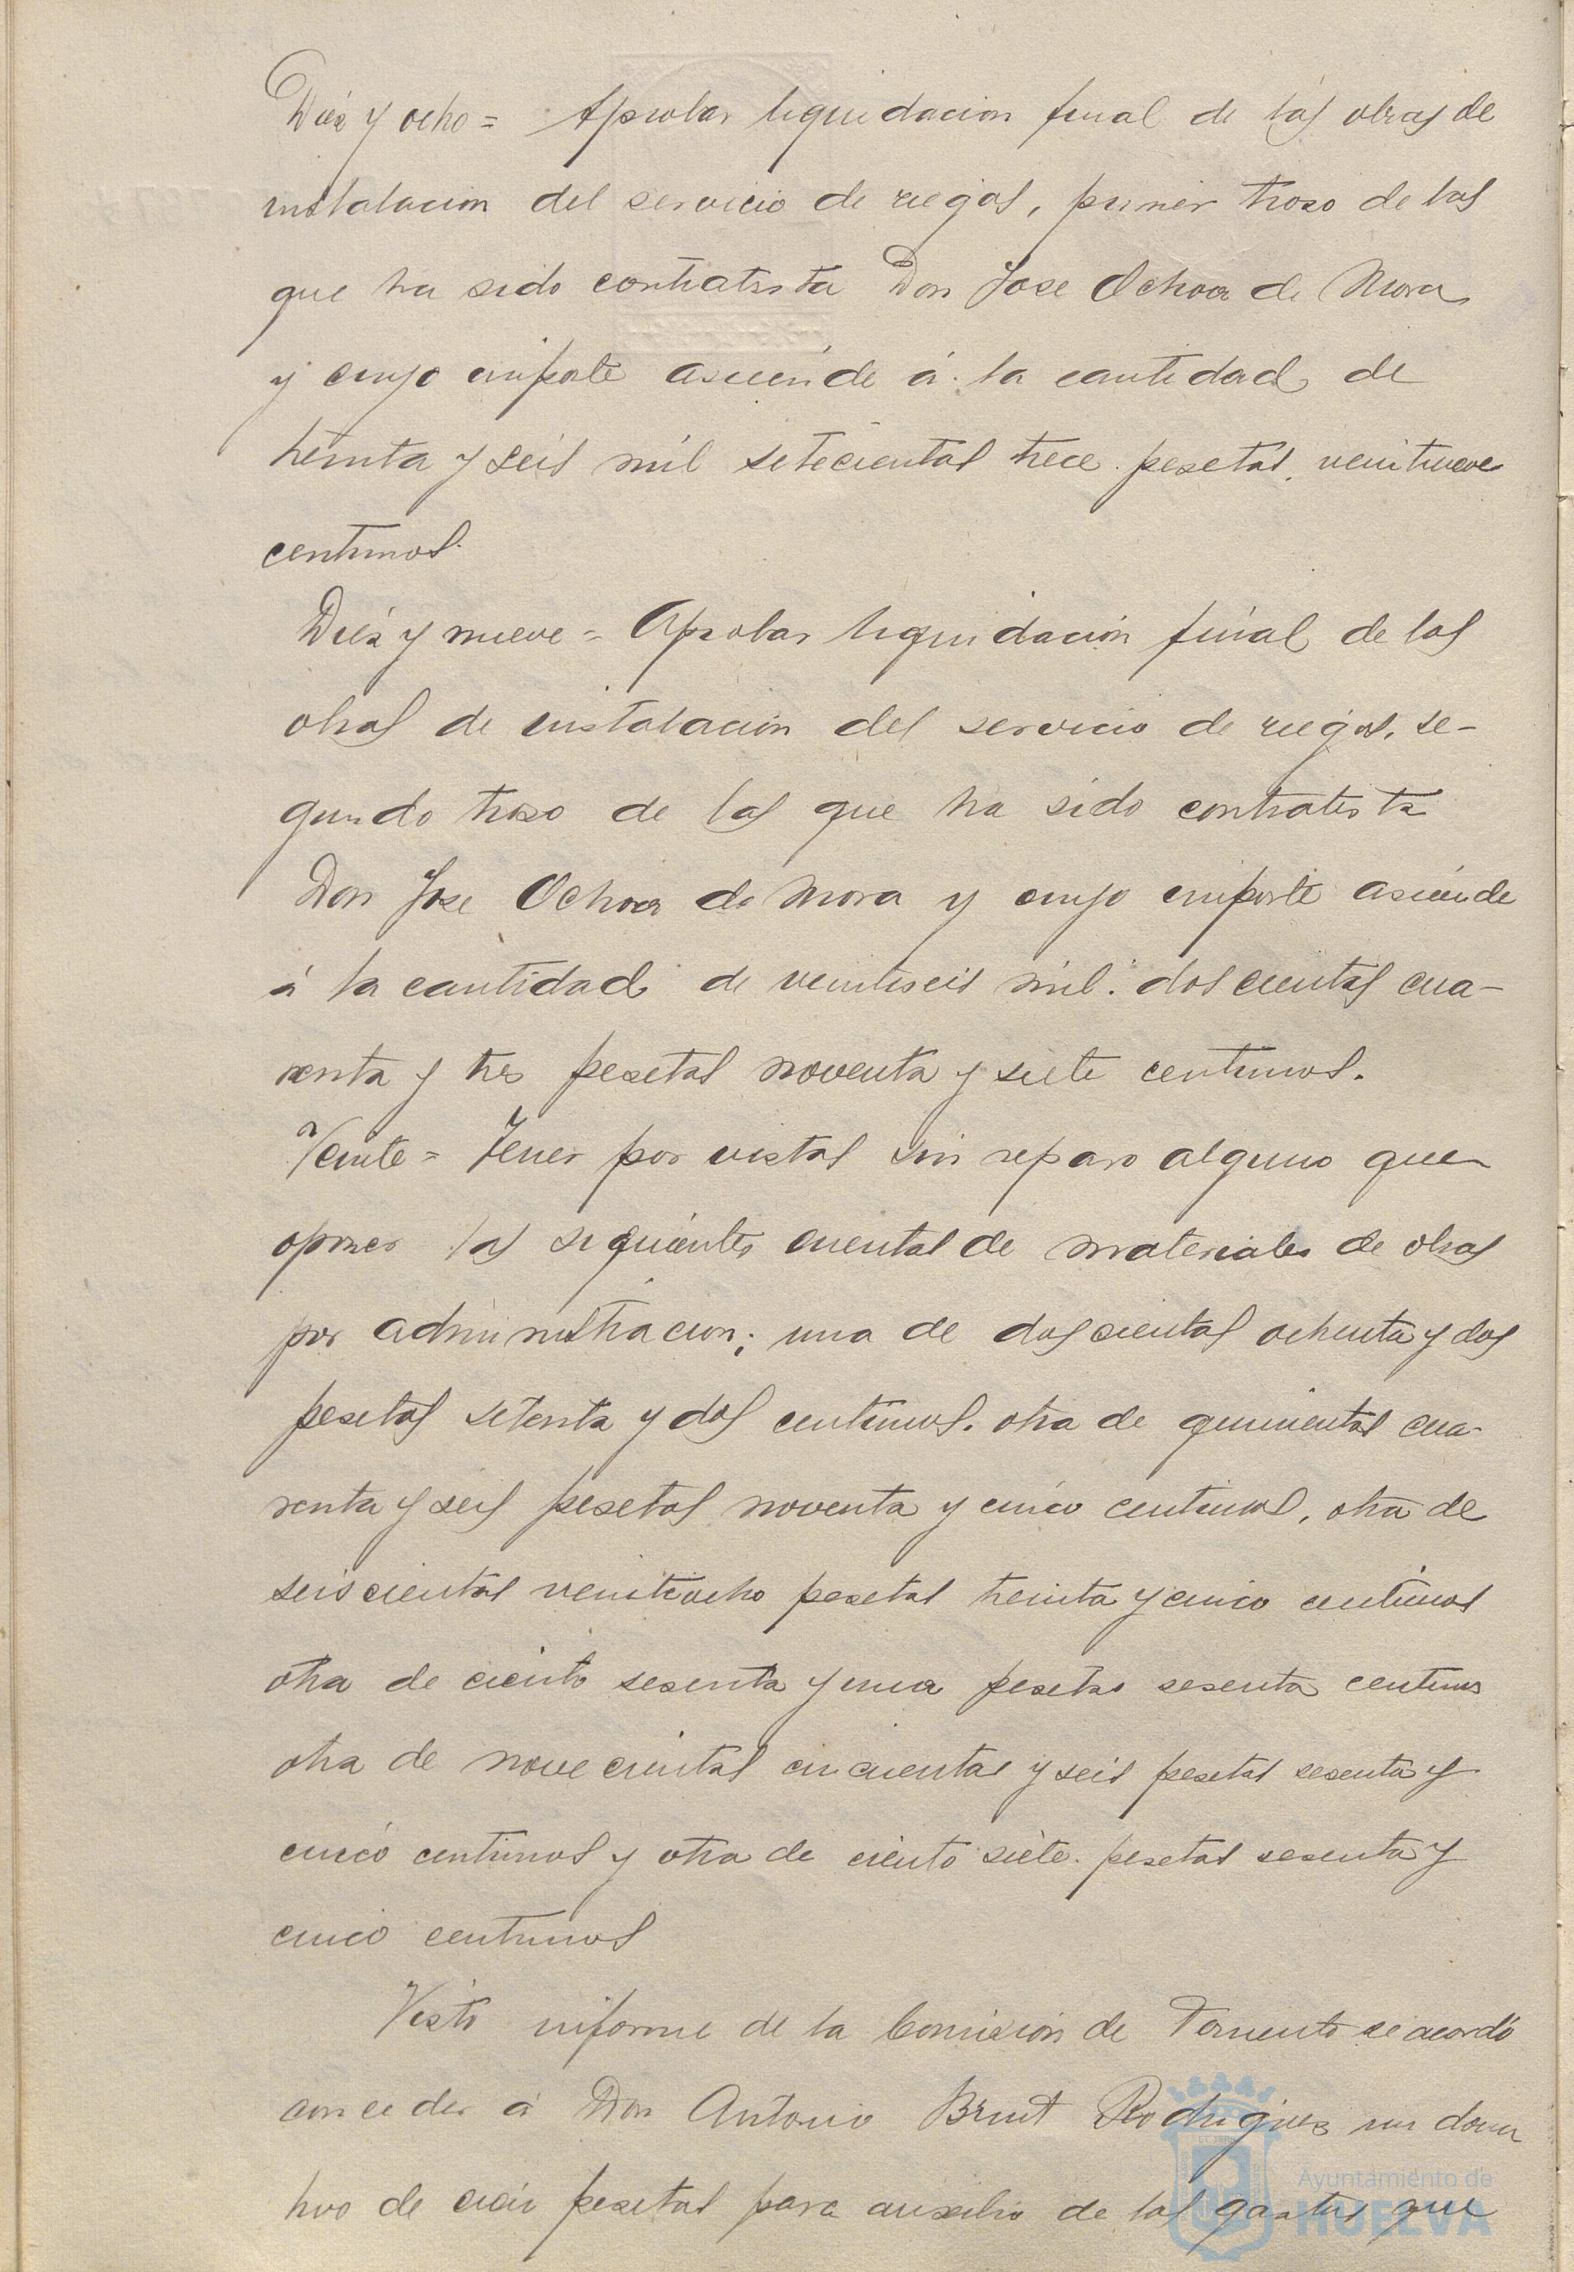 Diez y ocho = Aprobar liquidacion final de las obras de
instalacion del servicio de riegos, primer trozo de las
que ha sido contratista Don Jose Ochoa de Mora
y cuyo importe asciende á la cantidad de
treinta y seis mil setecientas trece pesetas, veintinueve
centimos.
Diez y nueve = Aprobar liquidación final de las
obras de instalación del servicio de riegos, se-
gundo trozo de las que ha sido contratista
Don Jose Ochoa de Mora y cuyo importe asciende
á la cantidad de veintiseis mil doscientas cua-
renta y tres pesetas noventa y siete centimos.
Veinte = Tener por vistas sin reparo alguno que
oponer las siguientes cuentas de materiales de obras
por administracion; una de doscientas ochenta y dos
pesetas setenta y dos centimos. otra de quinientas cua-
renta y seis pesetas noventa y cinco centimos, otra de
seiscientas veintiocho pesetas treinta y cinco centimos
otra de ciento sesenta y una pesetas sesenta centimos
otra de novecientas cincuentas y seis pesetas sesenta y
cinco centimos y otra de ciento siete pesetas sesenta y
cinco centimos
Visto informe de la Comisión de Fomento se acordó
conceder á Don Antonio Brunt Rodriguez un dona
tivo de cien pesetas para auxilio de los gastos que
Ayuntamiento de
HUELVA